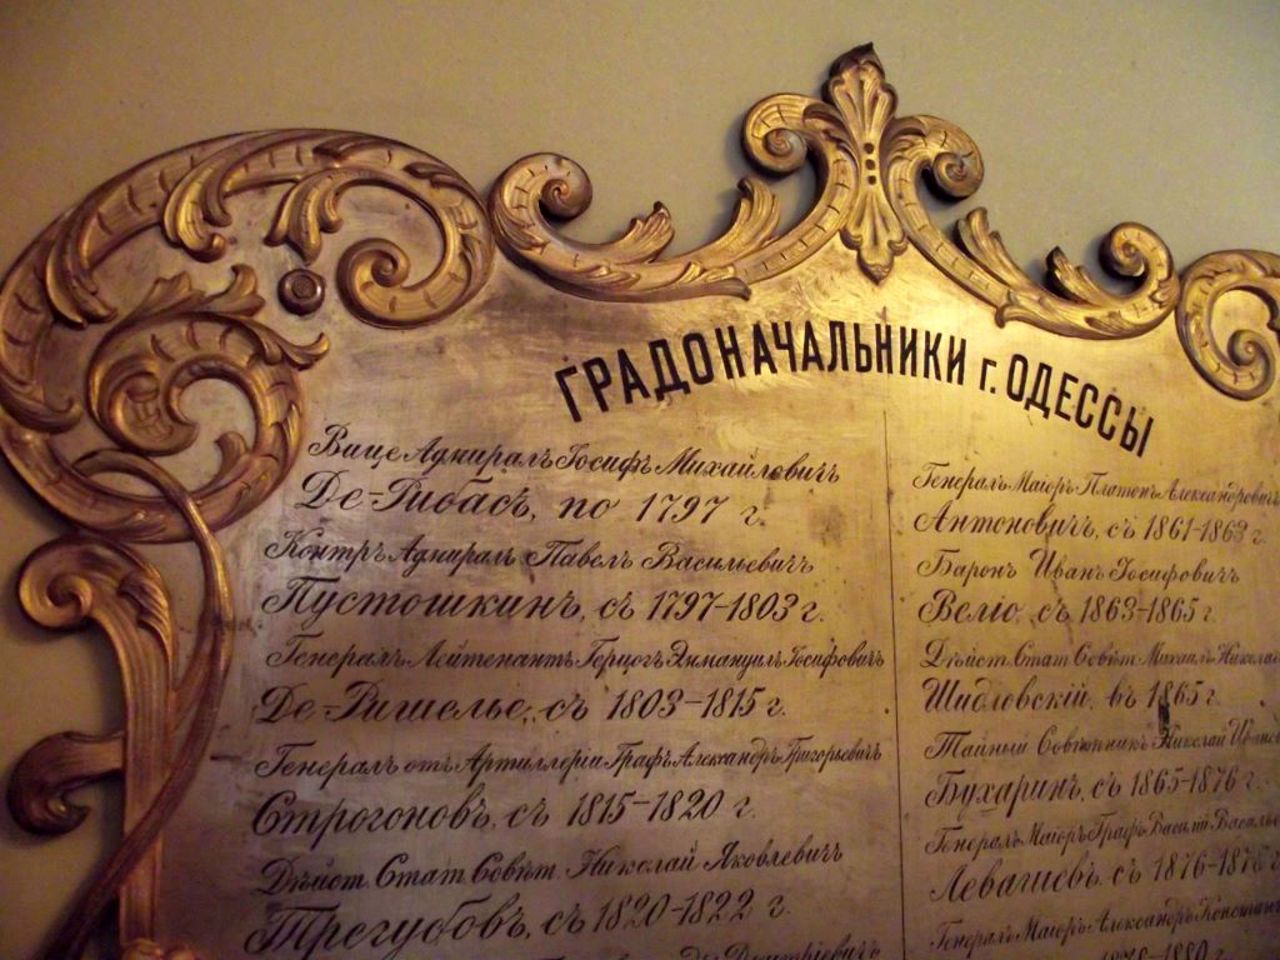 ГРАДОНАЧАЛЬНИКИ г. ОДЕССЫ
Вице Адмиралъ Іосифъ Михайловичъ
Де-Рибасъ, по 1797 г.
Контръ Адмиралъ Павелъ Васильевичъ
Пустошкинъ, съ 1797-1803 г.
Генералъ Лейтенантъ Герцогъ Эммануилъ Іосифовичъ
Де-Ришелье, съ 1803-1815 г.
Генералъ отъ Артиллеріи Графъ Александръ Григорьевичъ
Строгоновъ, съ 1815-1820 г.
Дѣйст. Стат. Совѣт. Николай Яковлевичъ
Трегубовъ, съ 1820-1822 г.
Дмитріевичъ
Генералъ Маіоръ Платонъ Александровичъ
Антоновичъ, съ 1861-1863 г.
Баронъ Иванъ Іосифовичъ
Веліо, съ 1863-1865 г.
Дѣйст. Стат. Совѣт. Михаилъ Никола
Шидловскій, въ 1865 г.
Тайный Совѣтникъ Николай Ивано
Бухаринъ, съ 1865-1876 г.
Генералъ Маіоръ Графъ Василій Василь
Левашевъ, съ 1876-1878 г
Генералъ Маіоръ Александръ Констан
1880 г.